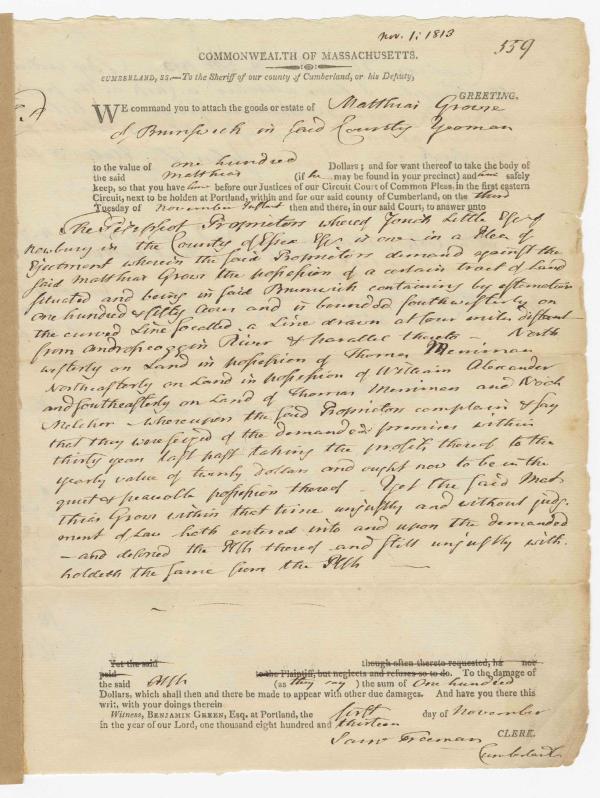 Nov. 1. 1813
559
COMMONWEALTH OF MASSACHUSETTS.
CUMBERLAND, SS.—To the Sheriff of our county of Cumberland, or his Deputy,
GREETING.
WE command you to attach the goods or estate of Matthias Grows
of Brunswick in said County Yeoman
to the value of one hundred Dollars; and for want thereof to take the body of
the said Matthias (if he may be found in your precinct) and safely
keep, so that you have before our Justices of our Circuit Court of Common Pleas, in the first eastern
Circuit, next to be holden at Portland, within and for our said county of Cumberland, on the third
Tuesday of November Instant then and there, in our said Court, to answer unto
The Pejepscot Proprietors whereof Josiah Little Esq of
Newbury in the County of Essex Esqr is one in a Plea of
Ejectment wherein the said Proprietors demand against the
said Matthias Grows the possession of a certain tract of Land
situated and being in said Brunswick containing by estimation
one hundred & fifty acres and is bounded southwesterly on
the curved Line so called, a Line drawn at four miles distant
from Androscoggin River & parallel thereto – North
westerly on Land in possession of Thomas Merriman
Northeasterly on Land in possession of William Alexander
and southeasterly on Land of Thomas Merriman and
Melcher – whereupon the said Proprietors complain & say
that they were seized of the demanded premises within
thirty years last past taking the profits thereof to the
yearly value of twenty Dollars and ought now to be in the
quiet & peaceable possession thereof – Yet the said Mat-
thias Grows within that time unjustly and without judg-
ment of Law hath entered into and upon the demanded
– and deforced the Plffs thereof and still unjustly with-
holdeth the same from the Plffs —
Yet the said though often thereto requested, ha not
paid to the Plaintiff, but neglects and refuses so to do. To the damage of
the said Plffs (as they say) the sum of One hundred
Dollars, which shall then and there be made to appear with other due damages. And have you there this
writ, with your doings therein
Witness, BENJAMIN GREEN, Esq. at Portland, the first day of November
in the year of our Lord, one thousand eight hundred and thirteen
Saml Freeman CLERK.
Cumberland